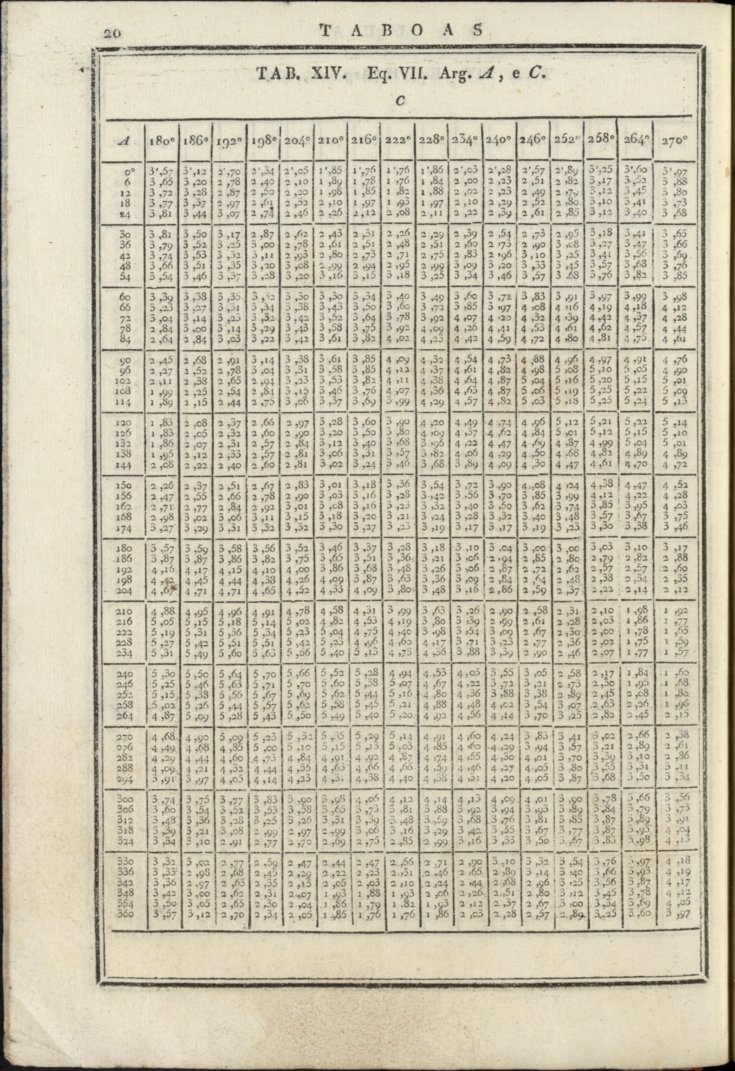 20 TABOAS
TAB. XIV. Eq. VII. Arg. A, e C.
C
A 180° 186° 192° 198° 204° 210° 216° 222° 228° 234° 240° 246° 252° 258° 264° 270°
0° 3',57 3',12 2',70 2',34 2',05 1',85 1',76 1',76 1',86 2',03 2',28 2',57 2',89 3',25 3',60 3',97
6 3,65 3,20 2,78 2,40 2,10 1,89 1,78 1,76 1,84 2,00 2,23 2,51 2,82 3,17 3,52 3,88
12 3,72 3,28 2,87 2,50 2,20 1,98 1,85 1,82 1,88 2,02 2,23 2,49 2,79 3,12 3,45 3,80
18 3,77 3,37 2,97 2,61 2,32 2,10 1,97 1,93 1,97 2,10 2,29 2,52 2,80 3,10 3,41 3,73
24 3,81 3,44 3,07 2,74 2,46 2,26 2,12 2,08 2,11 2,22 2,39 2,61 2,85 3,12 3,40 3,68
30 3,81 3,50 3,17 2,87 2,62 2,43 2,31 2,26 2,29 2,39 2,54 2,73 2,95 3,18 3,41 3,65
36 3,79 3,52 3,25 3,00 2,78 2,61 2,51 2,48 2,51 2,60 2,73 2,90 3,08 3,27 3,47 3,66
42 3,74 3,53 3,32 3,11 2,93 2,80 2,73 2,71 2,75 2,83 2,96 3,10 3,25 3,41 3,56 3,69
48 3,66 3,51 3,35 3,20 3,08 2,99 2,94 2,95 2,99 3,09 3,20 3,33 3,45 3,57 3,68 3,76
54 3,54 3,46 3,37 3,28 3,20 3,16 3,15 3,18 3,25 3,34 3,46 3,57 3,68 3,76 3,82 3,85
60 3,39 3,38 3,35 3,32 3,30 3,30 3,34 3,40 3,49 3,60 3,72 3,83 3,91 3,97 3,99 3,98
66 3,23 3,27 3,31 3,34 3,38 3,43 3,50 3,60 3,72 3,85 3,97 4,08 4,16 4,19 4,18 4,12
72 3,04 3,14 3,23 3,32 3,42 3,52 3,64 3,78 3,92 4,07 4,20 4,32 4,39 4,42 4,37 4,28
78 2,84 3,00 3,14 3,29 3,43 3,58 3,75 3,92 4,09 4,26 4,41 4,53 4,61 4,62 4,57 4,44
84 2,64 2,84 3,03 3,22 3,42 3,61 3,82 4,02 4,23 4,42 4,59 4,72 4,80 4,81 4,75 4,61
90 2,45 2,68 2,91 3,14 3,38 3,61 3,85 4,09 4,32 4,54 4,73 4,88 4,96 4,97 4,91 4,76
96 2,27 2,52 2,78 3,04 3,31 3,58 3,85 4,12 4,37 4,61 4,82 4,98 5,08 5,10 5,05 4,90
102 2,11 2,38 2,65 2,94 3,23 3,53 3,82 4,11 4,38 4,64 4,87 5,04 5,16 5,20 5,15 5,01
108 1,99 2,25 2,54 2,84 3,15 3,46 3,76 4,07 4,36 4,63 4,87 5,06 5,19 5,25 5,22 5,09
114 1,89 2,15 2,44 2,75 3,06 3,37 3,69 3,99 4,29 4,57 4,82 5,03 5,18 5,25 5,24 5,13
120 1,83 2,08 2,37 2,66 2,97 3,28 3,60 3,90 4,20 4,49 4,74 4,96 5,12 5,21 5,22 5,14
126 1,83 2,05 2,32 2,60 2,90 3,20 3,50 3,80 4,09 4,37 4,62 4,84 5,01 5,12 5,15 5,10
132 1,86 2,07 2,31 2,57 2,84 3,12 3,40 3,68 3,95 4,22 4,47 4,69 4,87 4,99 5,04 5,01
138 1,95 2,12 2,33 2,57 2,81 3,06 3,31 3,57 3,82 4,06 4,29 4,50 4,68 4,82 4,89 4,89
144 2,08 2,22 2,40 2,60 2,81 3,02 3,24 3,46 3,68 3,89 4,09 4,30 4,47 4,61 4,70 4,72
150 2,26 2,37 2,51 2,67 2,83 3,01 3,18 3,36 3,54 3,72 3,90 4,08 4,24 4,38 4,47 4,52
156 2,47 2,55 2,66 2,78 2,90 3,03 3,16 3,28 3,42 3,56 3,70 3,85 3,99 4,12 4,22 4,28
162 2,71 2,77 2,84 2,92 3,01 3,08 3,16 3,23 3,32 3,40 3,50 3,62 3,74 3,85 3,95 4,03
168 2,98 3,02 3,06 3,11 3,15 3,18 3,20 3,21 3,24 3,28 3,32 3,40 3,48 3,57 3,67 3,75
174 3,27 3,29 3,31 3,32 3,32 3,30 3,27 3,23 3,19 3,17 3,17 3,19 3,23 3,30 3,38 3,46
180 3,57 3,59 3,58 3,56 3,52 3,46 3,37 3,28 3,18 3,10 3,04 3,00 3,00 3,03 3,10 3,17
186 3,87 3,87 3,86 3,82 3,75 3,65 3,51 3,36 3,21 3,06 2,94 2,85 2,80 2,79 2,82 2,88
192 4,16 4,17 4,15 4,10 4,00 3,86 3,68 3,48 3,26 3,06 2,87 2,72 2,62 2,57 2,57 2,60
198 4,42 4,45 4,44 4,38 4,26 4,09 3,87 3,63 3,36 3,09 2,84 2,64 2,48 2,38 2,34 2,35
204 4,67 4,71 4,71 4,65 4,52 4,33 4,09 3,80 3,48 3,16 2,86 2,59 2,37 2,22 2,14 2,12
210 4,88 4,95 4,96 4,91 4,78 4,58 4,31 3,99 3,63 3,26 2,90 2,58 2,31 2,10 1,98 1,92
216 5,05 5,15 5,18 5,14 5,02 4,82 4,53 4,19 3,80 3,39 2,99 2,61 2,28 2,03 1,86 1,77
222 5,19 5,31 5,36 5,34 5,23 5,04 4,75 4,40 3,98 3,54 3,09 2,67 2,30 2,00 1,78 1,65
228 5,27 5,42 5,51 5,51 5,42 5,23 4,96 4,60 4,17 3,71 3,23 2,77 2,36 2,02 1,75 1,59
234 5,31 5,49 5,60 5,63 5,56 5,40 5,13 4,78 4,36 3,88 3,39 2,90 2,46 2,07 1,77 1,57
240 5,30 5,50 5,64 5,70 5,66 5,52 5,28 4,94 4,53 4,05 3,55 3,05 2,58 2,17 1,84 1,60
246 5,25 5,46 5,63 5,71 5,70 5,60 5,38 5,07 4,67 4,22 3,72 3,21 2,73 2,30 1,95 1,68
252 5,15 5,38 5,56 5,67 5,69 5,62 5,44 5,16 4,80 4,36 3,88 3,38 2,89 2,45 2,08 1,80
258 5,02 5,26 5,44 5,57 5,62 5,58 5,45 5,21 4,88 4,48 4,02 3,54 3,07 2,63 2,26 1,96
264 4,87 5,09 5,28 5,43 5,50 5,49 5,40 5,20 4,92 4,56 4,14 3,70 3,25 2,82 2,45 2,15
270 4,68 4,90 5,09 5,23 5,32 5,35 5,29 5,14 4,91 4,60 4,24 3,83 3,41 3,02 2,66 2,38
276 4,49 4,68 4,85 5,00 5,10 5,15 5,13 5,03 4,85 4,60 4,29 3,94 3,57 3,21 2,89 2,61
282 4,29 4,44 4,60 4,73 4,84 4,91 4,92 4,87 4,74 4,55 4,30 4,01 3,70 3,39 3,10 2,86
288 4,09 4,21 4,32 4,44 4,55 4,63 4,66 4,66 4,59 4,46 4,27 4,05 3,80 3,55 3,31 3,11
294 3,91 3,97 4,05 4,14 4,23 4,31 4,38 4,40 4,38 4,31 4,20 4,05 3,87 3,68 3,50 3,34
300 3,74 3,75 3,77 3,83 3,90 3,98 4,06 4,12 4,14 4,13 4,09 4,01 3,90 3,78 3,66 3,56
306 3,60 3,54 3,52 3,53 3,58 3,65 3,73 3,81 3,88 3,92 3,94 3,93 3,89 3,84 3,79 3,75
312 3,48 3,36 3,28 3,25 3,26 3,31 3,39 3,48 3,59 3,68 3,76 3,81 3,85 3,87 3,89 3,91
318 3,39 3,21 3,08 2,99 2,97 2,99 3,06 3,16 3,29 3,42 3,55 3,67 3,77 3,87 3,95 4,04
324 3,34 3,10 2,91 2,77 2,70 2,69 2,75 2,85 2,99 3,16 3,33 3,50 3,67 3,83 3,98 4,13
330 3,32 3,02 2,77 2,59 2,47 2,44 2,47 2,56 2,71 2,90 3,10 3,32 3,54 3,76 3,97 4,18
336 3,33 2,98 2,68 2,45 2,29 2,22 2,23 2,31 2,46 2,65 2,89 3,14 3,40 3,66 3,93 4,19
342 3,36 2,97 2,63 2,35 2,15 2,05 2,03 2,10 2,24 2,44 2,68 2,96 3,25 3,56 3,87 4,17
348 3,42 3,00 2,62 2,31 2,07 1,93 1,88 1,93 2,06 2,26 2,51 2,80 3,12 3,45 3,78 4,12
354 3,50 3,05 2,65 2,30 2,04 1,86 1,79 1,82 1,93 2,12 2,37 2,67 3,00 3,34 3,69 4,05
360 3,57 3,12 2,70 2,34 2,05 1,85 1,76 1,76 1,86 2,03 2,28 2,57 2,89 3,25 3,60 3,97